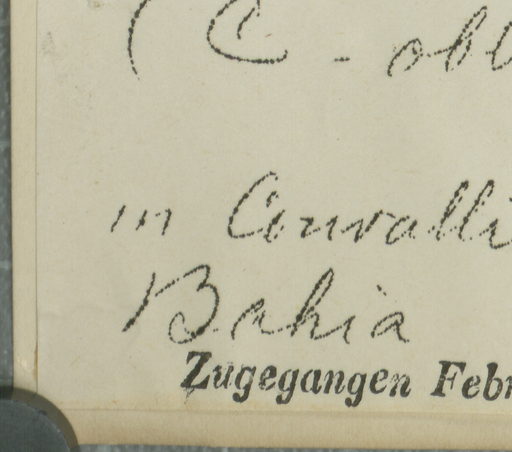 ( C - obl
in Convalli
Bahia
Zugegangen Febr